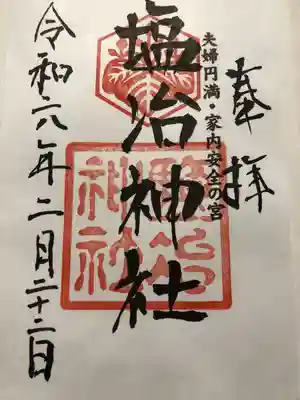 奉拝
夫婦円満・家内安全の宮
塩冶神社
鹽冶神社
令和六年二月二十二日